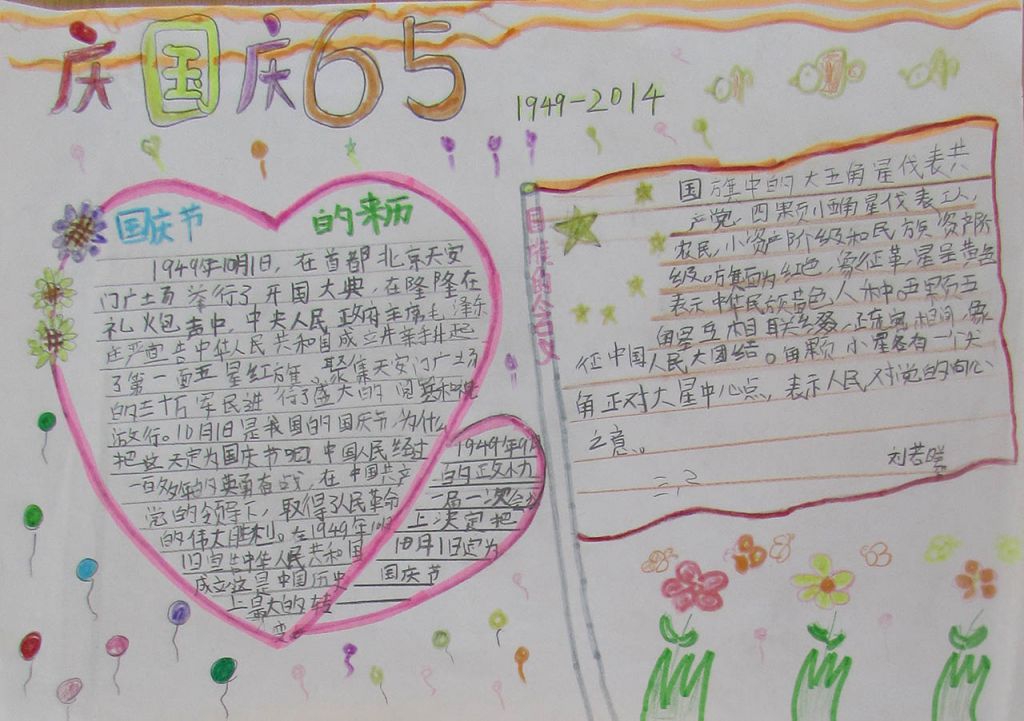 庆国庆65
1949-2014
国庆节 的来历
1949年10月1日，在首都北京天安
门广场举行了开国大典，在隆隆在
礼火包声中，中央人民政府主席毛泽东
庄严宣告中华人民共和国成立并亲手升起
了第一面五星红旗。聚集天安门广场
的三十万军民进行了盛大的阅兵和
游行。10月1日是我国的国庆节，为什么
把这天定为国庆节呢 中国人民经过
一百多年的英勇奋战，在中国共产
党的领导下，取得了人民革命
的伟大胜利。在1949年10月
1日宣告中华人民共和国
成立这是中国历史
上最大的转
变
1949年9月
的政协
一届一次会
上决定把
10月1日定为
国庆节
国旗的含义
国旗中的大五角星代表共
产党，四颗小五角星代表工人，
农民，小资产阶级和民族资产阶
级。旗面为红色，象征革，星呈黄色
表示中华民族黄色人种。五颗五
角星互相联 ，象
征中国人民大团结。每颗小星各有一个尖
角正对大星中心点，表示人民对党的向心
之意。
刘若
三，2